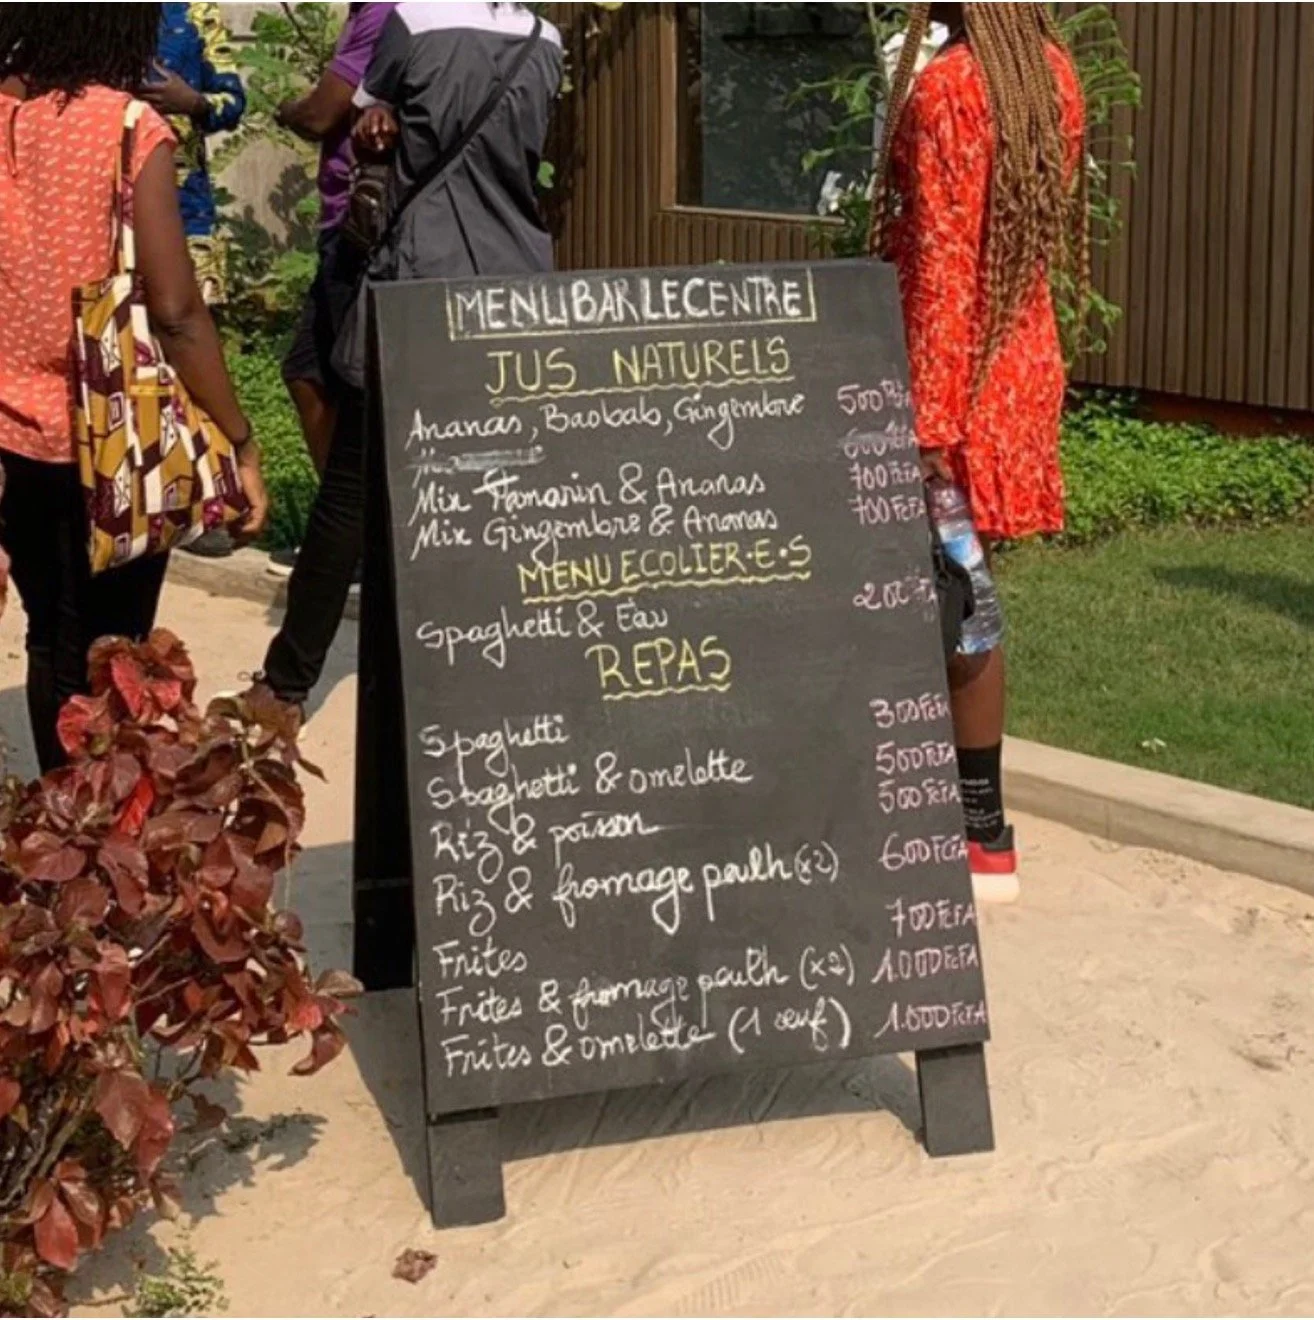 MENU BAR LE CENTRE
JUS NATURELS
Ananas, Baobab, Gingembre 500
600 FCFA
Mix Tamarin & Ananas 700 FCFA
Mix Gingembre & Ananas 700 FCFA
MENU ECOLIER·E·S
Spaghetti & Eau 200 FCFA
REPAS
Spaghetti 300 FCFA
Spaghetti & omelette 500 FCFA
Riz & poisson 500 FCFA
Riz & fromage peulh (x2) 600 FCFA
Frites 700 FCFA
Frites & fromage peulh (x2) 1.000 FCFA
Frites & omelette (1 œuf) 1.000 FCFA